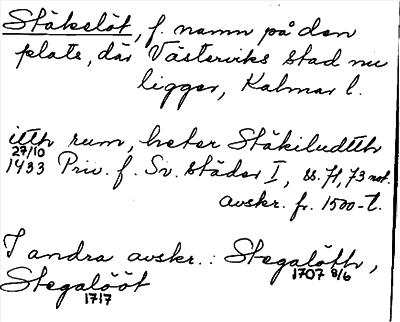 Stäkelöt, f. namn på den
plats, där Västerviks stad nu
ligger, Kalmar l.
itth rum, heter Stäkiludtth
27/10
1433 Priv. f. Sv. städer I, ss. 71, 73 not.
avskr. fr. 1500-t.
I andra avskr.: Stegalötth,
1707 8/6
Stegalööt
1717